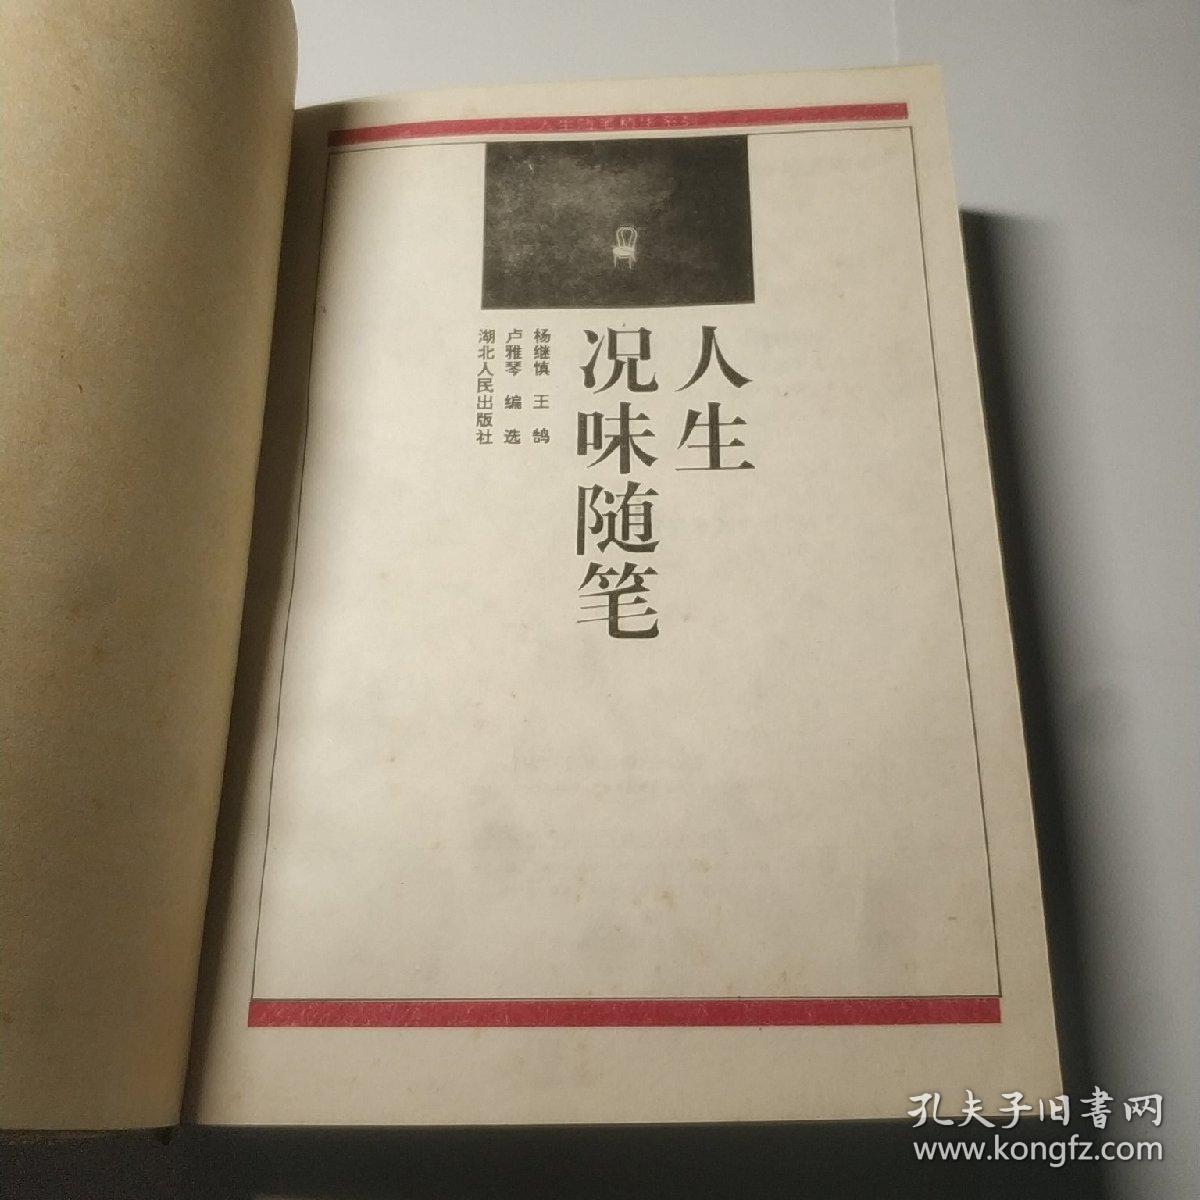 人生随笔精华系列
人生
况味随笔
杨继慎 王鹄
卢雅琴 编选
湖北人民出版社
孔夫子旧书网
www.kongfz.com